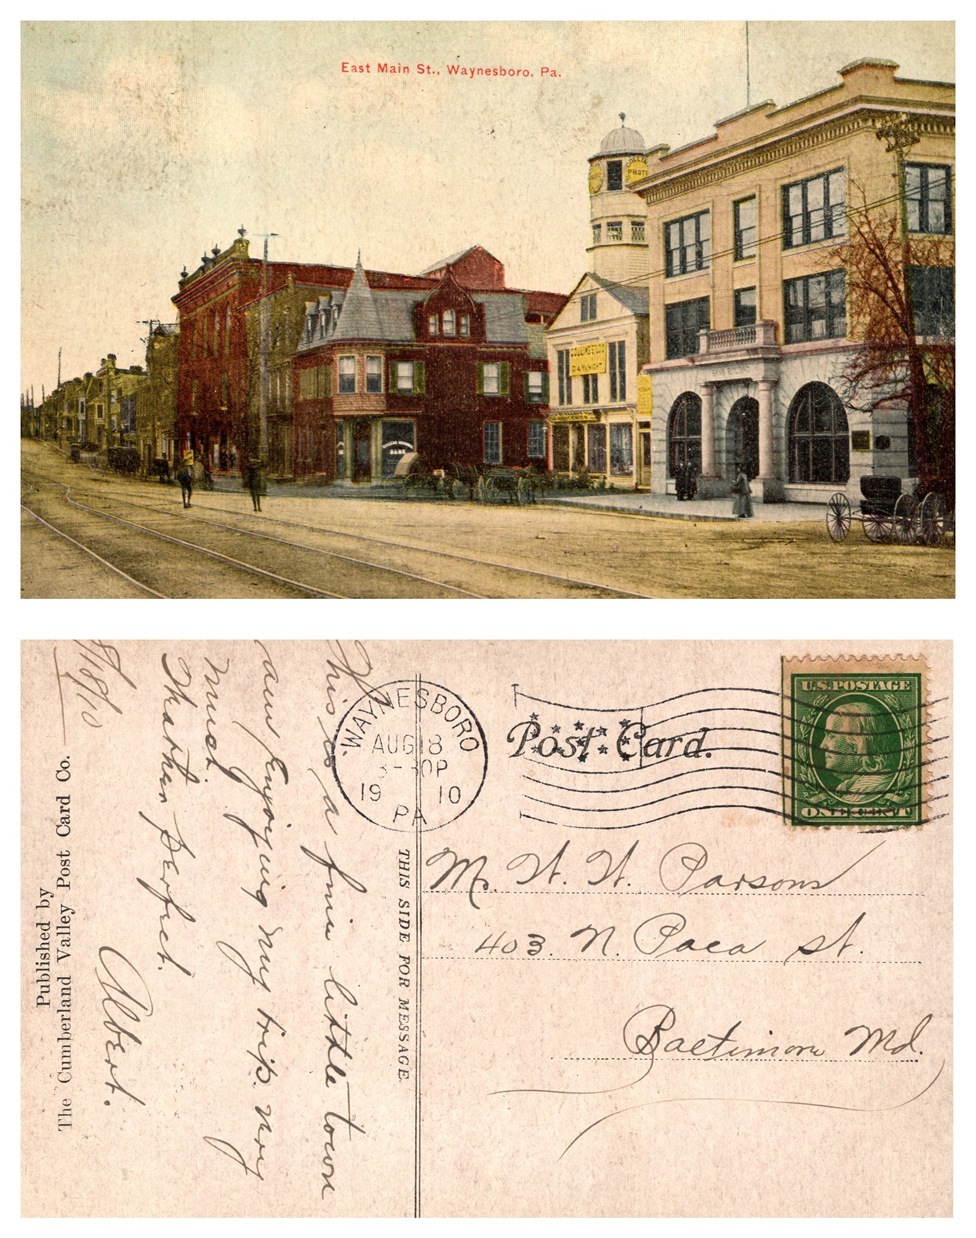 East Main St., Waynesboro, Pa.
PHOTO
BANK
WAYNESBORO
AUG 18
3-30P
19 10
PA
Post Card.
U.S. POSTAGE
ONE CENT
THIS SIDE FOR MESSAGE.
Mr. H. H. Parsons
403. N. Paca st.
Baltimore Md.
This is a fine little town
am Enjoying my trip. very
much.
Weather perfect.
Albert.
8/18/10
Published by
The Cumberland Valley Post Card Co.